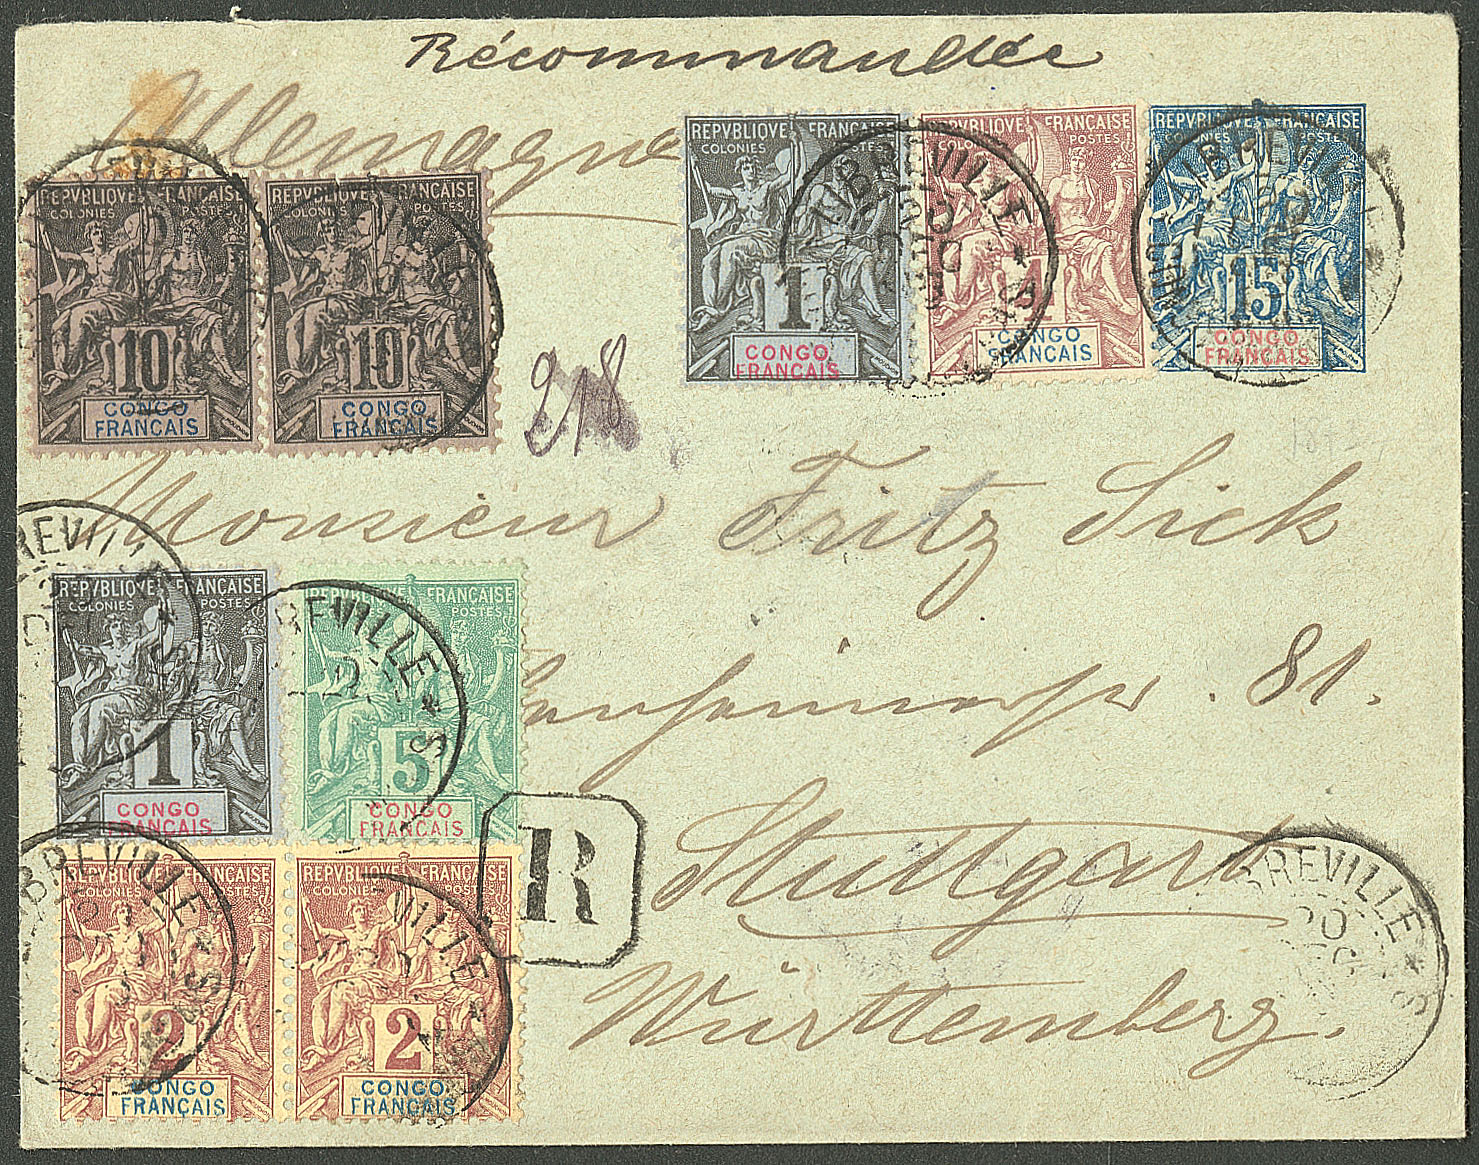 Récommandée
Allemagne
REPVBLIQVE FRANÇAISE
COLONIES POSTES
10
CONGO
FRANÇAIS
REPVBLIQVE FRANÇAISE
COLONIES POSTES
10
CONGO
FRANÇAIS
REPVBLIQVE FRANÇAISE
COLONIES POSTES
1
CONGO
FRANÇAIS
REPVBLIQVE FRANÇAISE
COLONIES POSTES
4
CONGO
FRANÇAIS
LIBREVILLE
REPVBLIQVE FRANÇAISE
COLONIES POSTES
15
CONGO
FRANÇAIS
218
Monsieur Fritz Sick
81.
Stuttgart
Württemberg.
REPVBLIQVE FRANÇAISE
COLONIES POSTES
1
CONGO
FRANÇAIS
REPVBLIQVE FRANÇAISE
POSTES
5
CONGO
FRANÇAIS
R
REPVBLIQVE FRANÇAISE
COLONIES POSTES
2
CONGO
FRANÇAIS
REPVBLIQVE FRANÇAISE
COLONIES POSTES
2
CONGO
FRANÇAIS
BREVILLE